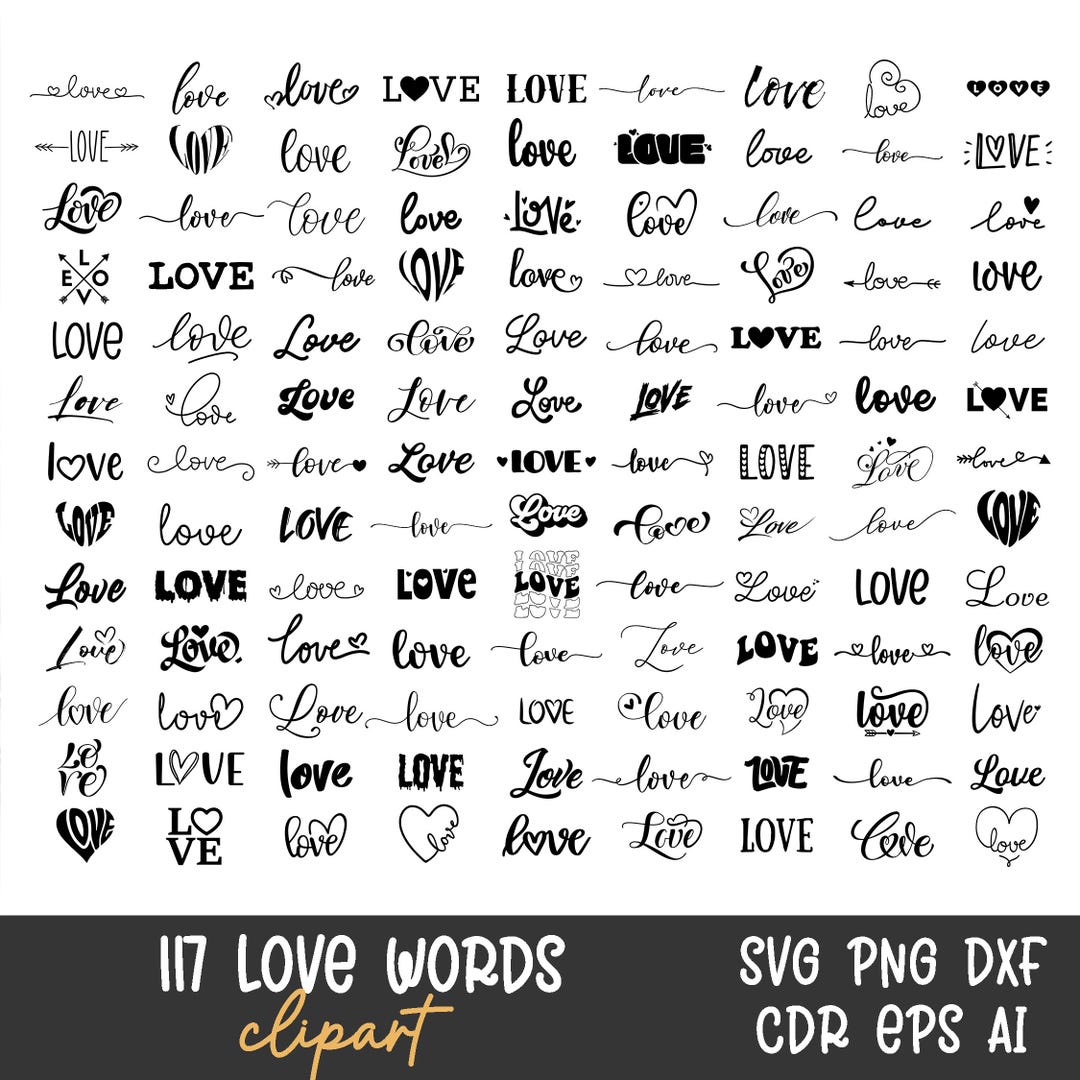 love love love L♥VE LOVE love love love LOVE
LOVE LOVE love Love love LOVE love love LOVE
Love love love love LOVe love love love love
LOVE LOVE love LOVE love love Love love love
LOVe love Love Love Love love L♥VE love love
Love love Love Love Love LOVE love love L♥VE
l♡ve love love Love LOVE love LOVE Love love
LOVE love LOVE love Love Love Love love LOVE
Love LOVE love LOVe LOVE love Love LOVe Love
LOVE
LOVE
LOVE
LOVE
Love Love Love love love Love LOVE love love
love love Love love L♡VE love Love love Love
Love L♡VE love LOVE Love love LOVE love Love
LOVE L♡VE love love love Love LOVE Love love
117 Love Words
clipart
SVG PNG DXF
CDR EPS AI